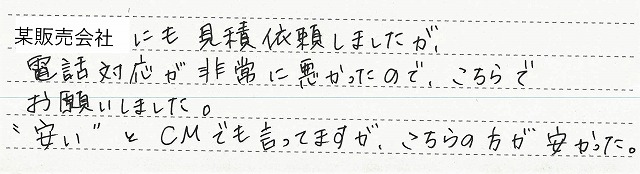 某販売会社 にも見積依頼しましたが、
電話対応が非常に悪かったので、こちらで
お願いしました。
"安い"とCMでも言ってますが、こちらの方が安かった。